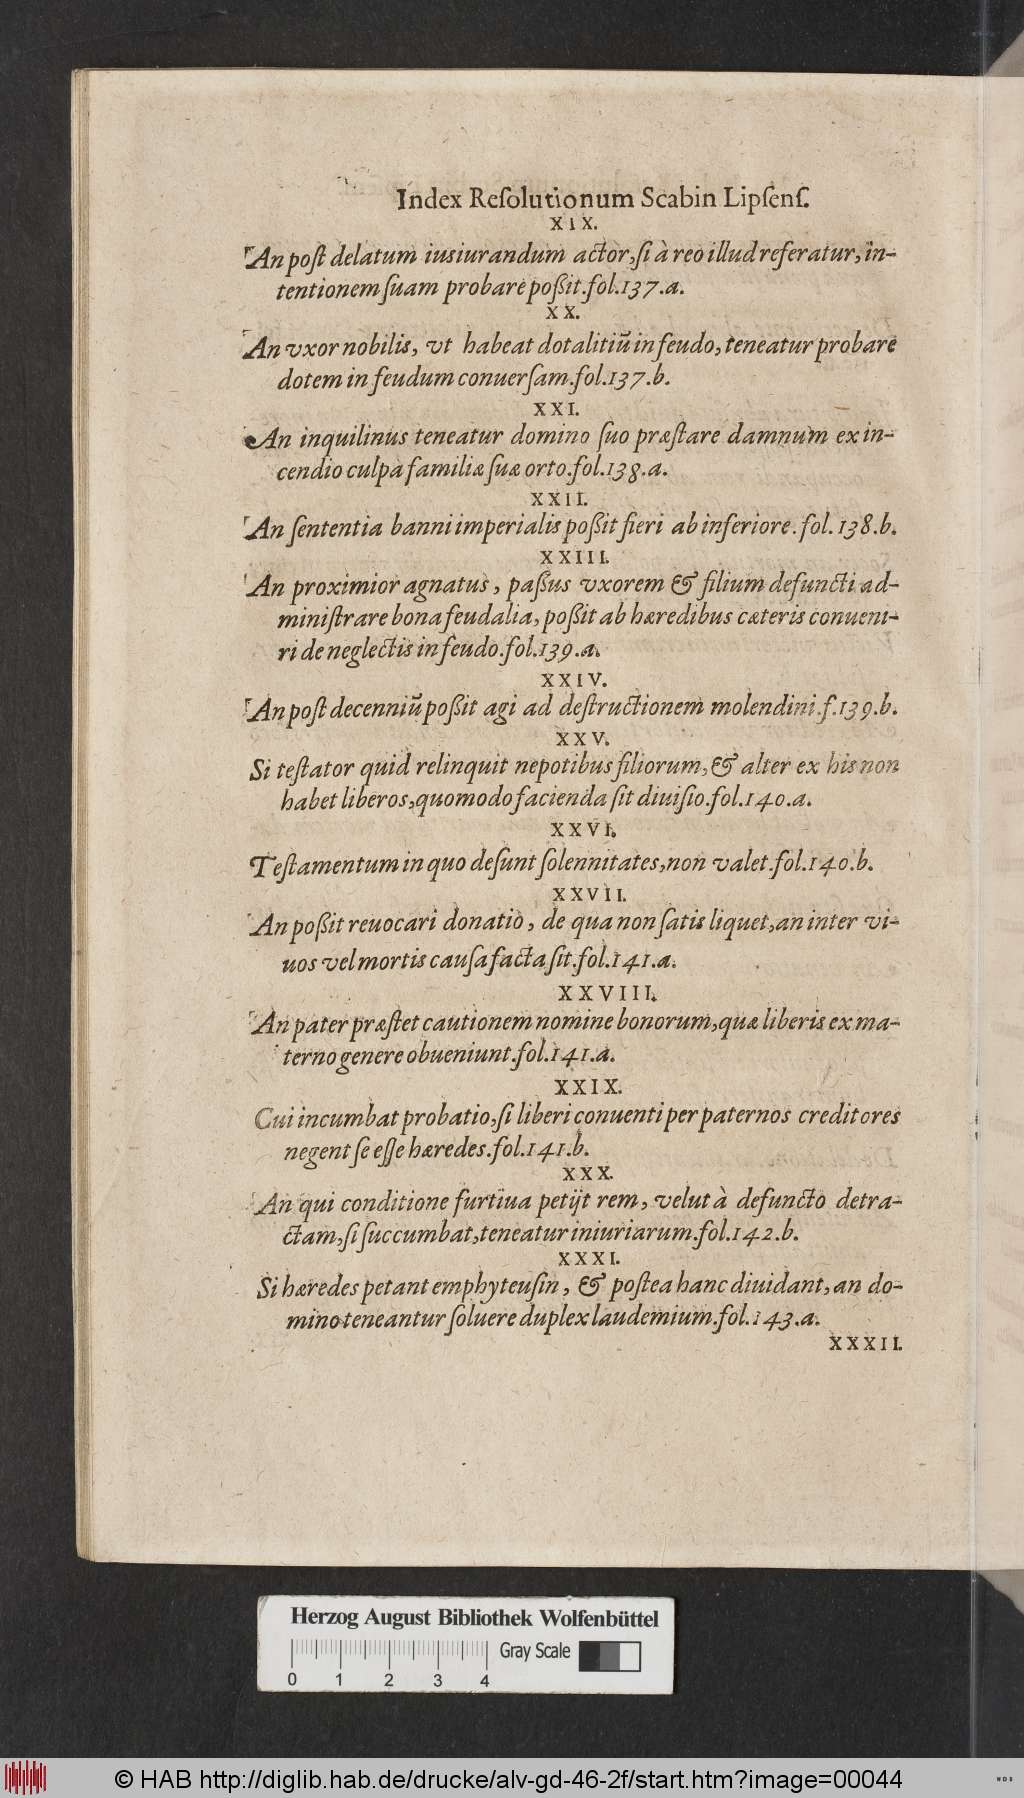 Index Reſolutionum Scabin Lipſenſ.
XIX.
An poſt delatum iusiurandum actor, ſi à reo illud referatur, in-
tentionem ſuam probare poßit. fol. 137. a.
XX.
An vxor nobilis, vt habeat dotalitiũ in feudo, teneatur probare
dotem in feudum conuerſam. fol. 137. b.
XXI.
An inquilinus teneatur domino ſuo præſtare damnum ex in-
cendio culpa familiæ ſuæ orto. fol. 138. a.
XXII.
An ſententia banni imperialis poßit fieri ab inferiore. fol. 138. b.
XXIII.
An proximior agnatus, paßus vxorem & filium defuncti ad-
miniſtrare bona feudalia, poßit ab hæredibus cæteris conueni-
ri de neglectis in feudo. fol. 139. a.
XXIV.
An poſt decenniũ poßit agi ad deſtructionem molendini. f. 139. b.
XXV.
Si teſtator quid relinquit nepotibus filiorum, & alter ex his non
habet liberos, quomodo facienda ſit diuiſio. fol. 140. a.
XXVI.
Teſtamentum in quo deſunt ſolennitates, non valet. fol. 140. b.
XXVII.
An poßit reuocari donatio, de qua non ſatis liquet, an inter vi-
uos vel mortis cauſa facta ſit. fol. 141. a.
XXVIII.
An pater præſtet cautionem nomine bonorum, quæ liberis ex ma-
terno genere obueniunt. fol. 141. a.
XXIX.
Cui incumbat probatio, ſi liberi conuenti per paternos creditores
negent ſe eſſe hæredes. fol. 141. b.
XXX.
An qui conditione furtiua petijt rem, velut à defuncto detra-
ctam, ſi ſuccumbat, teneatur iniuriarum. fol. 142. b.
XXXI.
Si hæredes petant emphyteuſin, & poſtea hanc diuidant, an do-
mino teneantur ſoluere duplex laudemium. fol. 143. a.
XXXII.
Herzog August Bibliothek Wolfenbüttel
Gray Scale
0 1 2 3 4
© HAB http://diglib.hab.de/drucke/alv-gd-46-2f/start.htm?image=00044